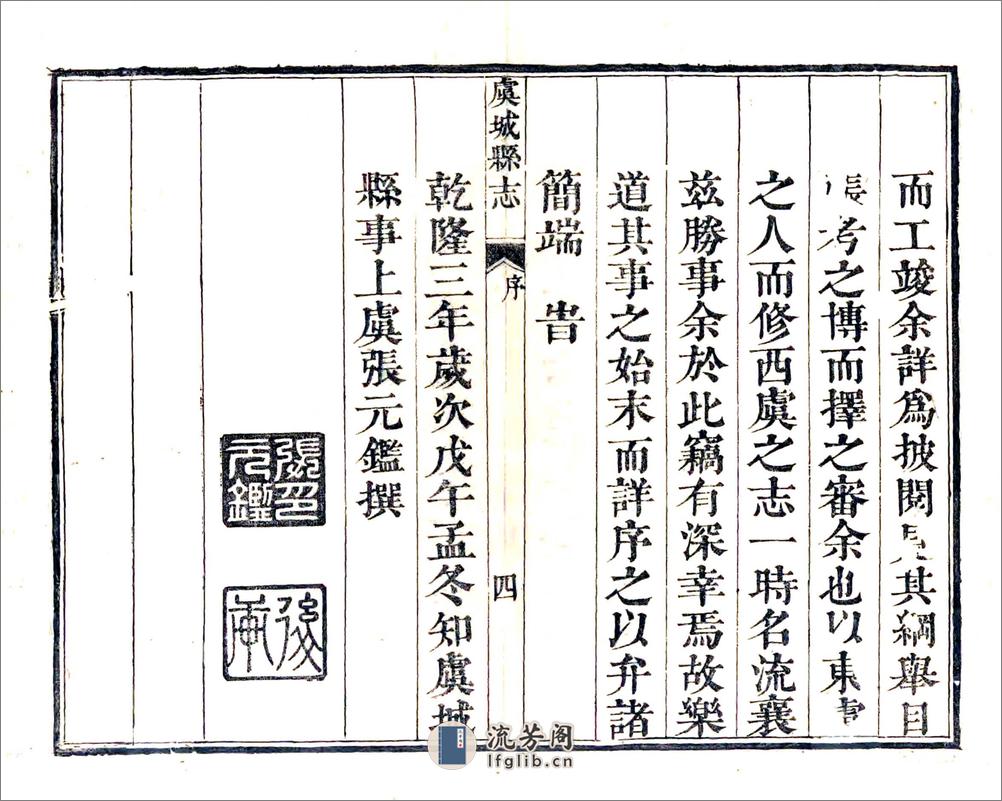 而工竣余詳為披閱見其綱舉目
張考之博而擇之審余也以東虞
之人而修西虞之志一時名流襄
茲勝事余於此竊有深幸焉故樂
道其事之始末而詳序之以弁諸
簡端 旹
虞城縣志 序 四
乾隆三年歲次戊午孟冬知虞城
縣事上虞張元鑑撰
張元鑑印
流芳阁
lfglib.cn